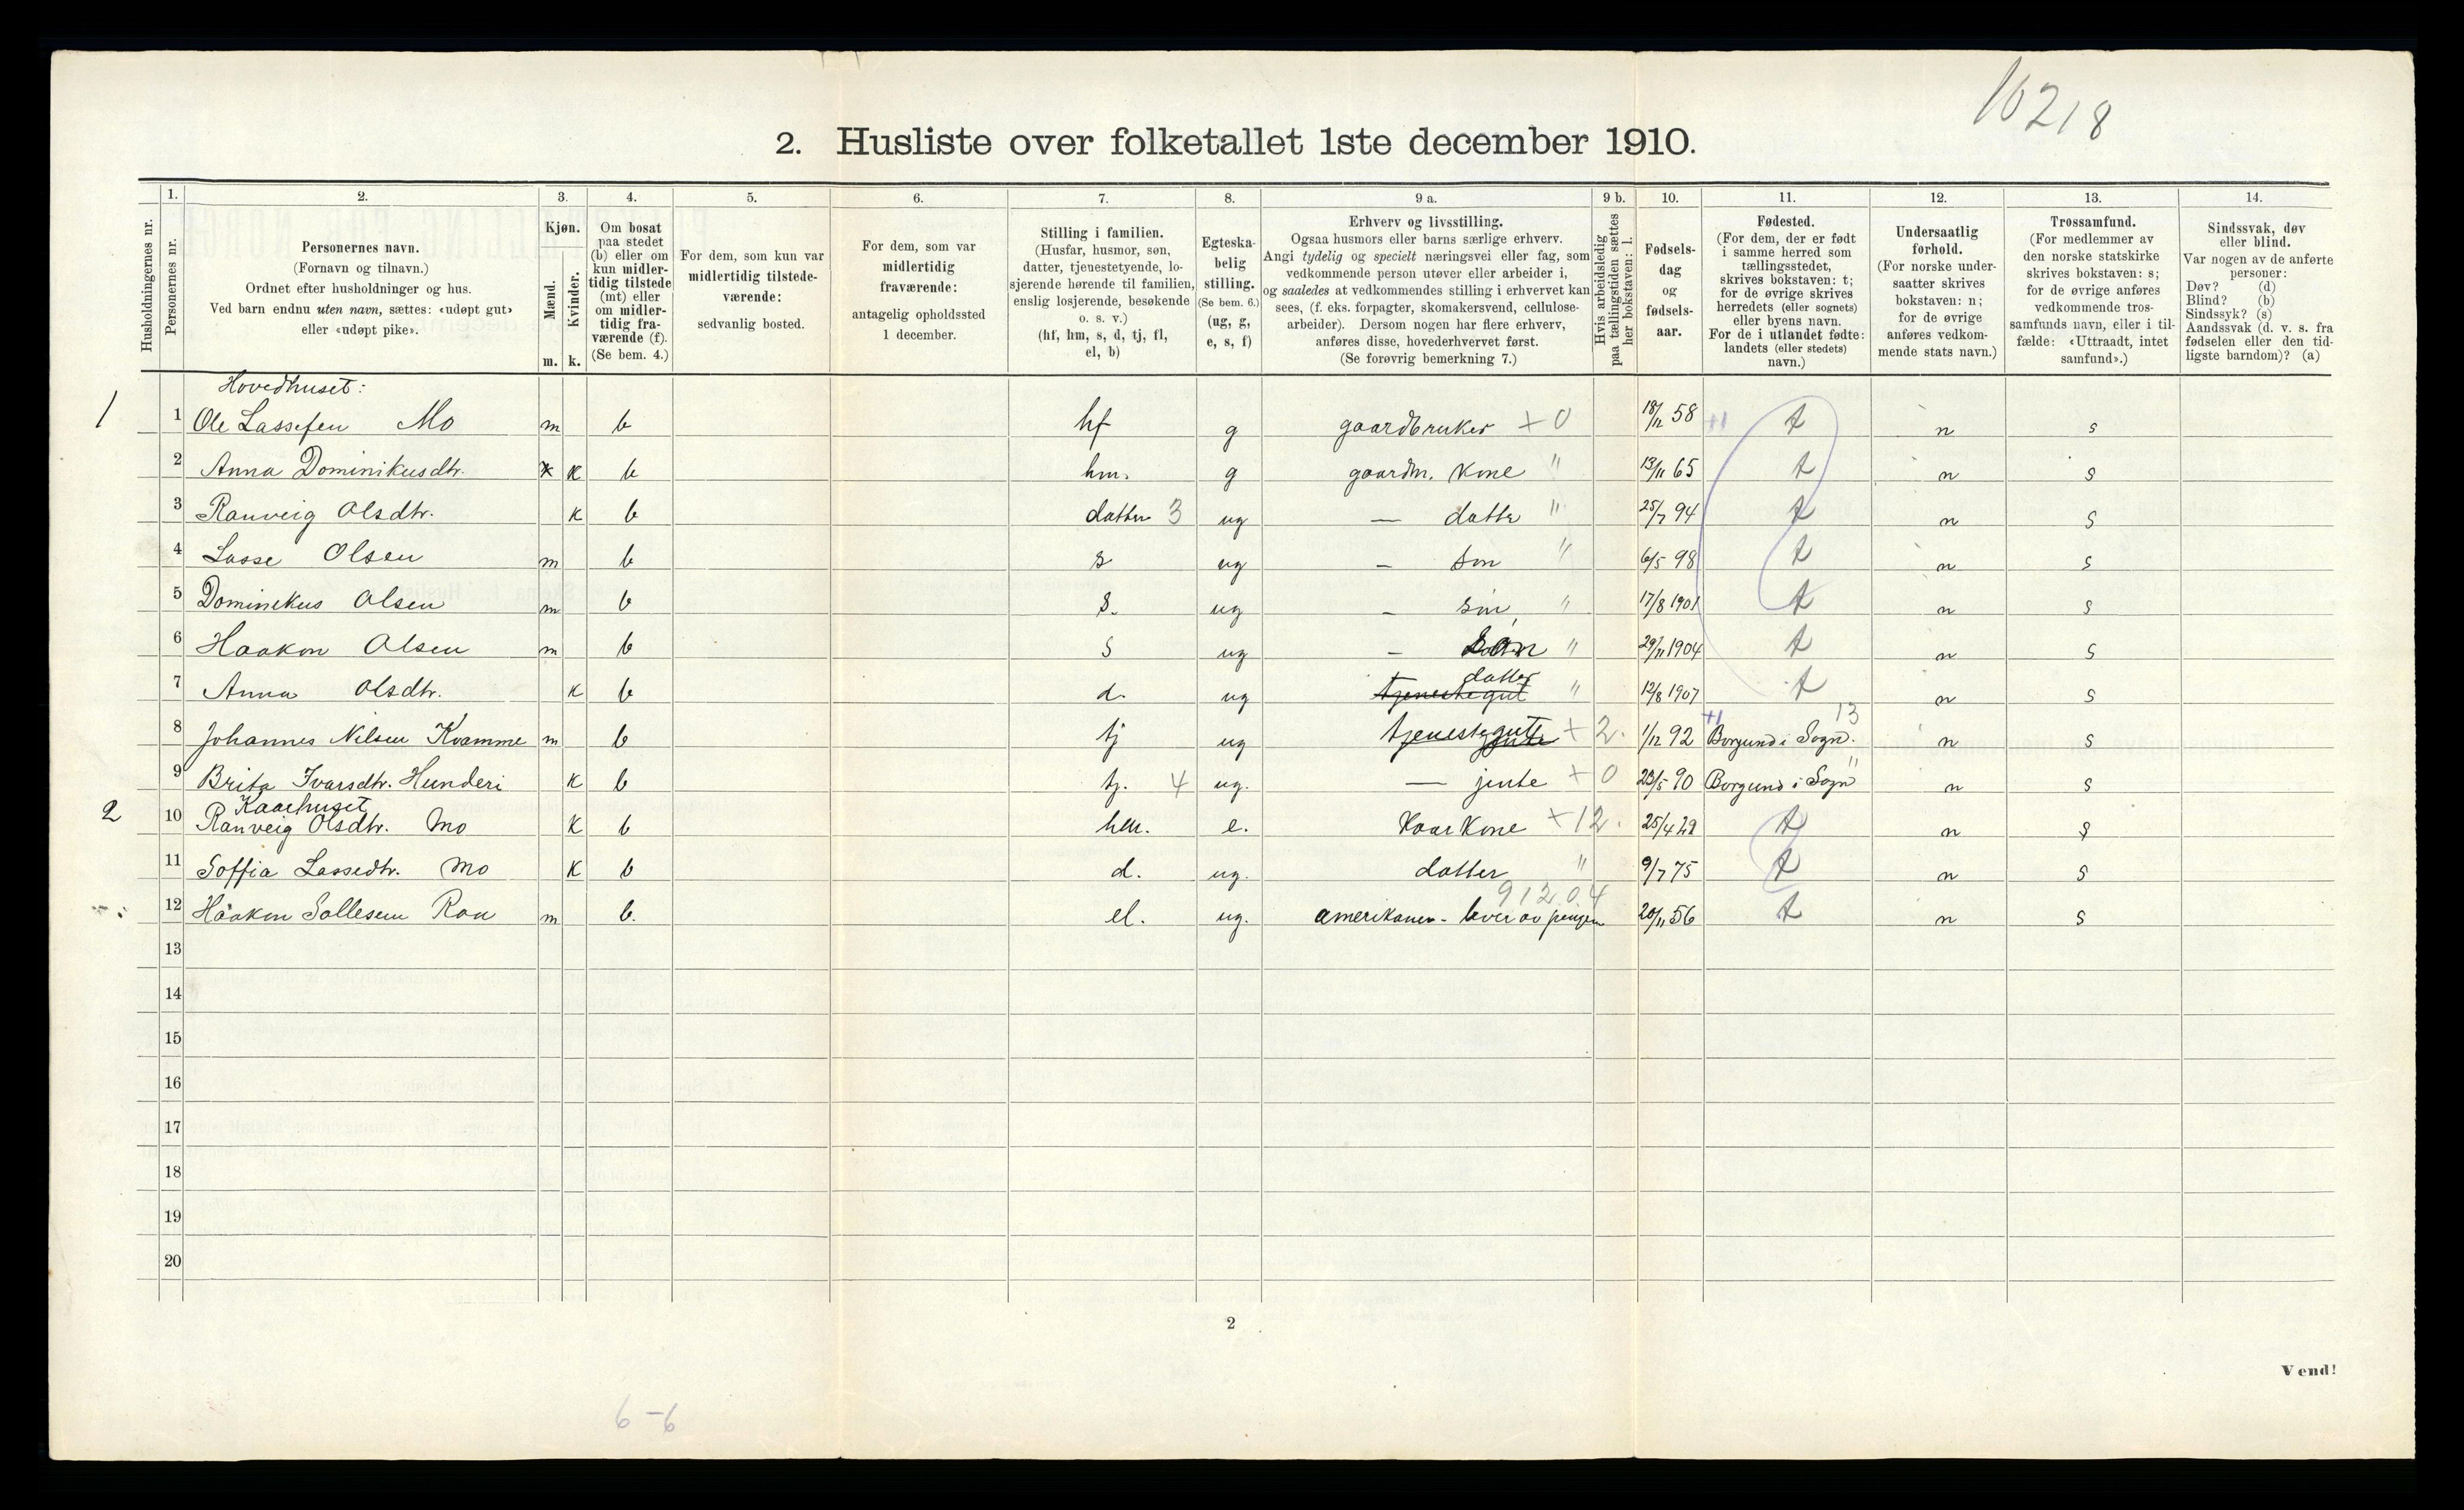 16218
2. Husliste over folketallet 1ste december 1910.
Husholdningernes nr.
1.
Personernes nr.
2.
Personernes navn.
(Fornavn og tilnavn.)
Ordnet efter husholdninger og hus.
Ved barn endnu uten navn, sættes: «udøpt gut»
eller «udøpt pike».
3.
Kjøn.
Mænd.
Kvinder.
m. k.
4.
Om bosat
paa stedet
(b) eller om
kun midler-
tidig tilstede
(mt) eller
om midler-
tidig fra-
værende (f).
(Se bem. 4.)
5.
For dem, som kun var
midlertidig tilstede-
værende:
sedvanlig bosted.
6.
For dem, som var
midlertidig
fraværende:
antagelig opholdssted
1 december.
7.
Stilling i familien.
(Husfar, husmor, søn,
datter, tjenestetyende, lo-
sjerende hørende til familien,
enslig losjerende, besøkende
o. s. v.)
(hf, hm, s, d, tj, fl,
el, b)
8.
Egteska-
belig
stilling.
(Se bem. 6.)
(ug, g,
e, s, f)
9 a.
Erhverv og livsstilling.
Ogsaa husmors eller barns særlige erhverv.
Angi tydelig og specielt næringsvei eller fag, som
vedkommende person utøver eller arbeider i,
og saaledes at vedkommendes stilling i erhvervet kan
sees, (f. eks. forpagter, skomakersvend, cellulose-
arbeider). Dersom nogen har flere erhverv,
anføres disse, hovederhvervet først.
(Se forøvrig bemerkning 7.)
9 b.
Hvis arbeidsledig
paa tællingstiden sættes
her bokstaven: l.
10.
Fødsels-
dag
og
fødsels-
aar.
11.
Fødested.
(For dem, der er født
i samme herred som
tællingsstedet,
skrives bokstaven: t;
for de øvrige skrives
herredets (eller sognets)
eller byens navn.
For de i utlandet fødte:
landets (eller stedets)
navn.)
12.
Undersaatlig
forhold.
(For norske under-
saatter skrives
bokstaven: n;
for de øvrige
anføres vedkom-
mende stats navn.)
13.
Trossamfund.
(For medlemmer av
den norske statskirke
skrives bokstaven: s;
for de øvrige anføres
vedkommende tros-
samfunds navn, eller i til-
fælde: «Uttraadt, intet
samfund».)
14.
Sindssvak, døv
eller blind.
Var nogen av de anførte
personer:
Døv? (d)
Blind? (b)
Sindssyk? (s)
Aandssvak (d. v. s. fra
fødselen eller den tid-
ligste barndom)? (a)
Hovedhuset:
1 1 Ole Lassesen Mo m b hf g gaardbruker + 0 18/12 58 +1 t n s
2 Anna Dominikusdtr. k b hm. g gaardm. kone " 13/11 65 t n s
3 Ranveig Olsdtr. k b datter 3 ug — datter " 25/7 94 t n s
4 Lasse Olsen m b s ug — søn " 6/5 98 t n s
5 Dominekus Olsen m b s. ug — søn " 17/8 1901 t n s
6 Haakon Olsen m b s ug — Søn " 29/11 1904 t n s
7 Anna Olsdtr. k b d. ug tjenestegut datter " 12/8 1907 t n s
8 Johannes Nilsen Kvamme m b tj ug tjenestegut + 2. 1/12 92 +1 Borgund i Sogn. 13 n s
9 Brita Ivarsdtr. Hunderi k b tj. 4 ug. — jente + 0 23/5 90 Borgund i Sogn " n s
Kaarhuset
2 10 Ranveig Olsdtr. Mo k b hm. e. Kaarkone + 12. 25/4 29 t n s
11 Soffia Lassedtr. Mo k b d. ug. datter " 9/7 75 t n s
91204
12 Haakon Sollesen Rau m b. el. ug. amerikaner - lever av pengen 20/11 56 t n s
13
14
15
16
17
18
19
20
2
Vend!
6-6